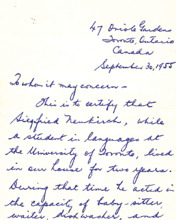 47 Oriole Gardens
Toronto, Ontario
Canada
September 30, 1955
To whom it may concern -
This is to certify that
Siegfried Neukirch, while
a student in languages at
the University of Toronto, lived
in our house for two years.
During that time he acted in
the capacity of baby-sitter,
waiter, dishwasher, and